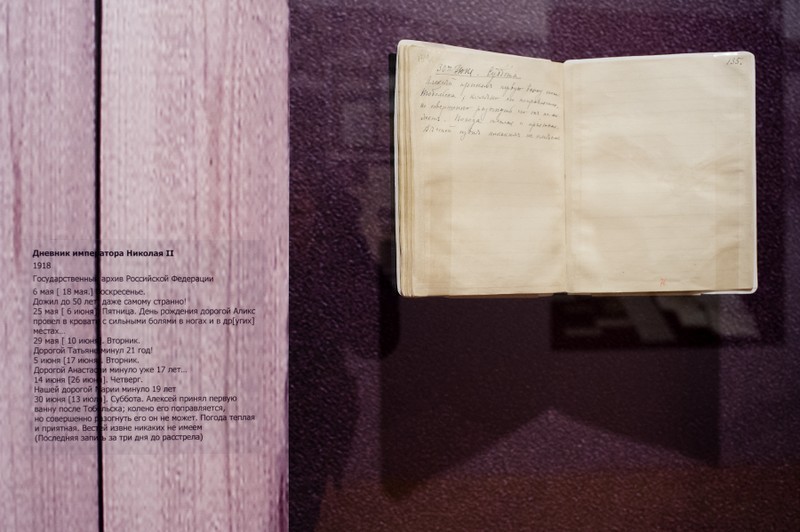 Дневник императора Николая II
1918
Государственный архив Российской Федерации
6 мая [ 18 мая.] Воскресенье.
Дожил до 50 лет, даже самому странно!
25 мая [ 6 июня]. Пятница. День рождения дорогой Аликс
провел в кровати с сильными болями в ногах и в др[угих]
местах..
29 мая [ 10 июня]. Вторник.
Дорогой Татьяне минул 21 год!
5 июня [17 июня]. Вторник.
Дорогой Анастасии минуло уже 17 лет...
14 июня [26 июня]. Четверг.
Нашей дорогой Марии минуло 19 лет
30 июня [13 июля]. Суббота. Алексей принял первую
ванну после Тобольска; колено его поправляется,
но совершенно разогнуть его он не может. Погода теплая
и приятная. Вестей извне никаких не имеем
(Последняя запись за три дня до расстрела)
30го Июня. Суббота.
Алексей принялъ первую ванну послѣ
Тобольска; колѣно его поправляется,
но совершенно разогнуть его онъ не мо-
жетъ. Погода теплая и пріятная.
Вѣстей извнѣ никакихъ не имѣемъ